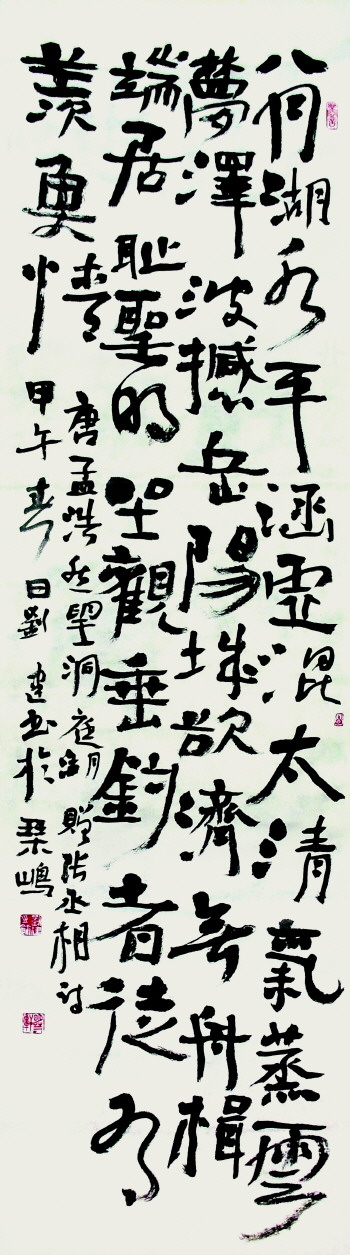 八月湖水平涵虛混太清氣蒸雲
夢澤波撼岳陽城欲濟無舟楫
端居恥聖明坐觀垂釣者徒有
羨魚情
唐孟浩然望洞庭湖贈張丞相詩
甲午春日劉建書於琹嶋